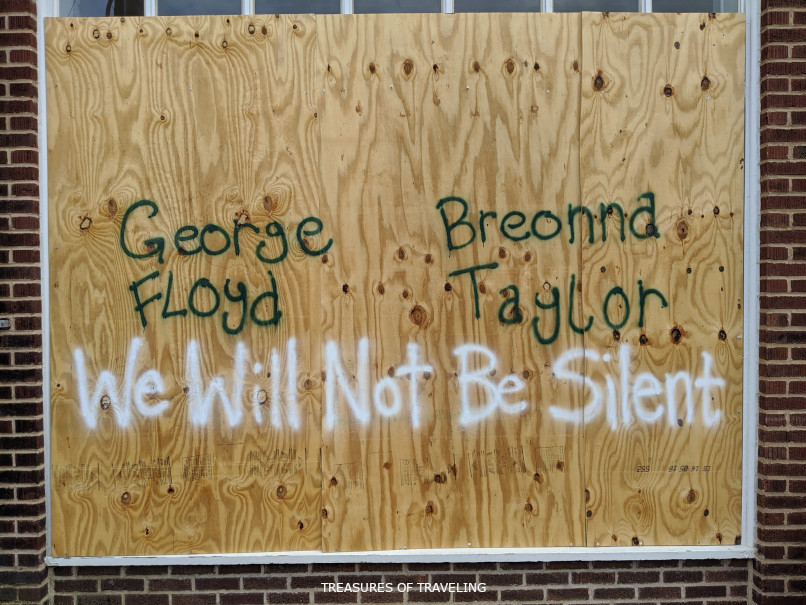 George Breonna
FLoyd Taylor
We Will Not Be Silent
TREASURES OF TRAVELING